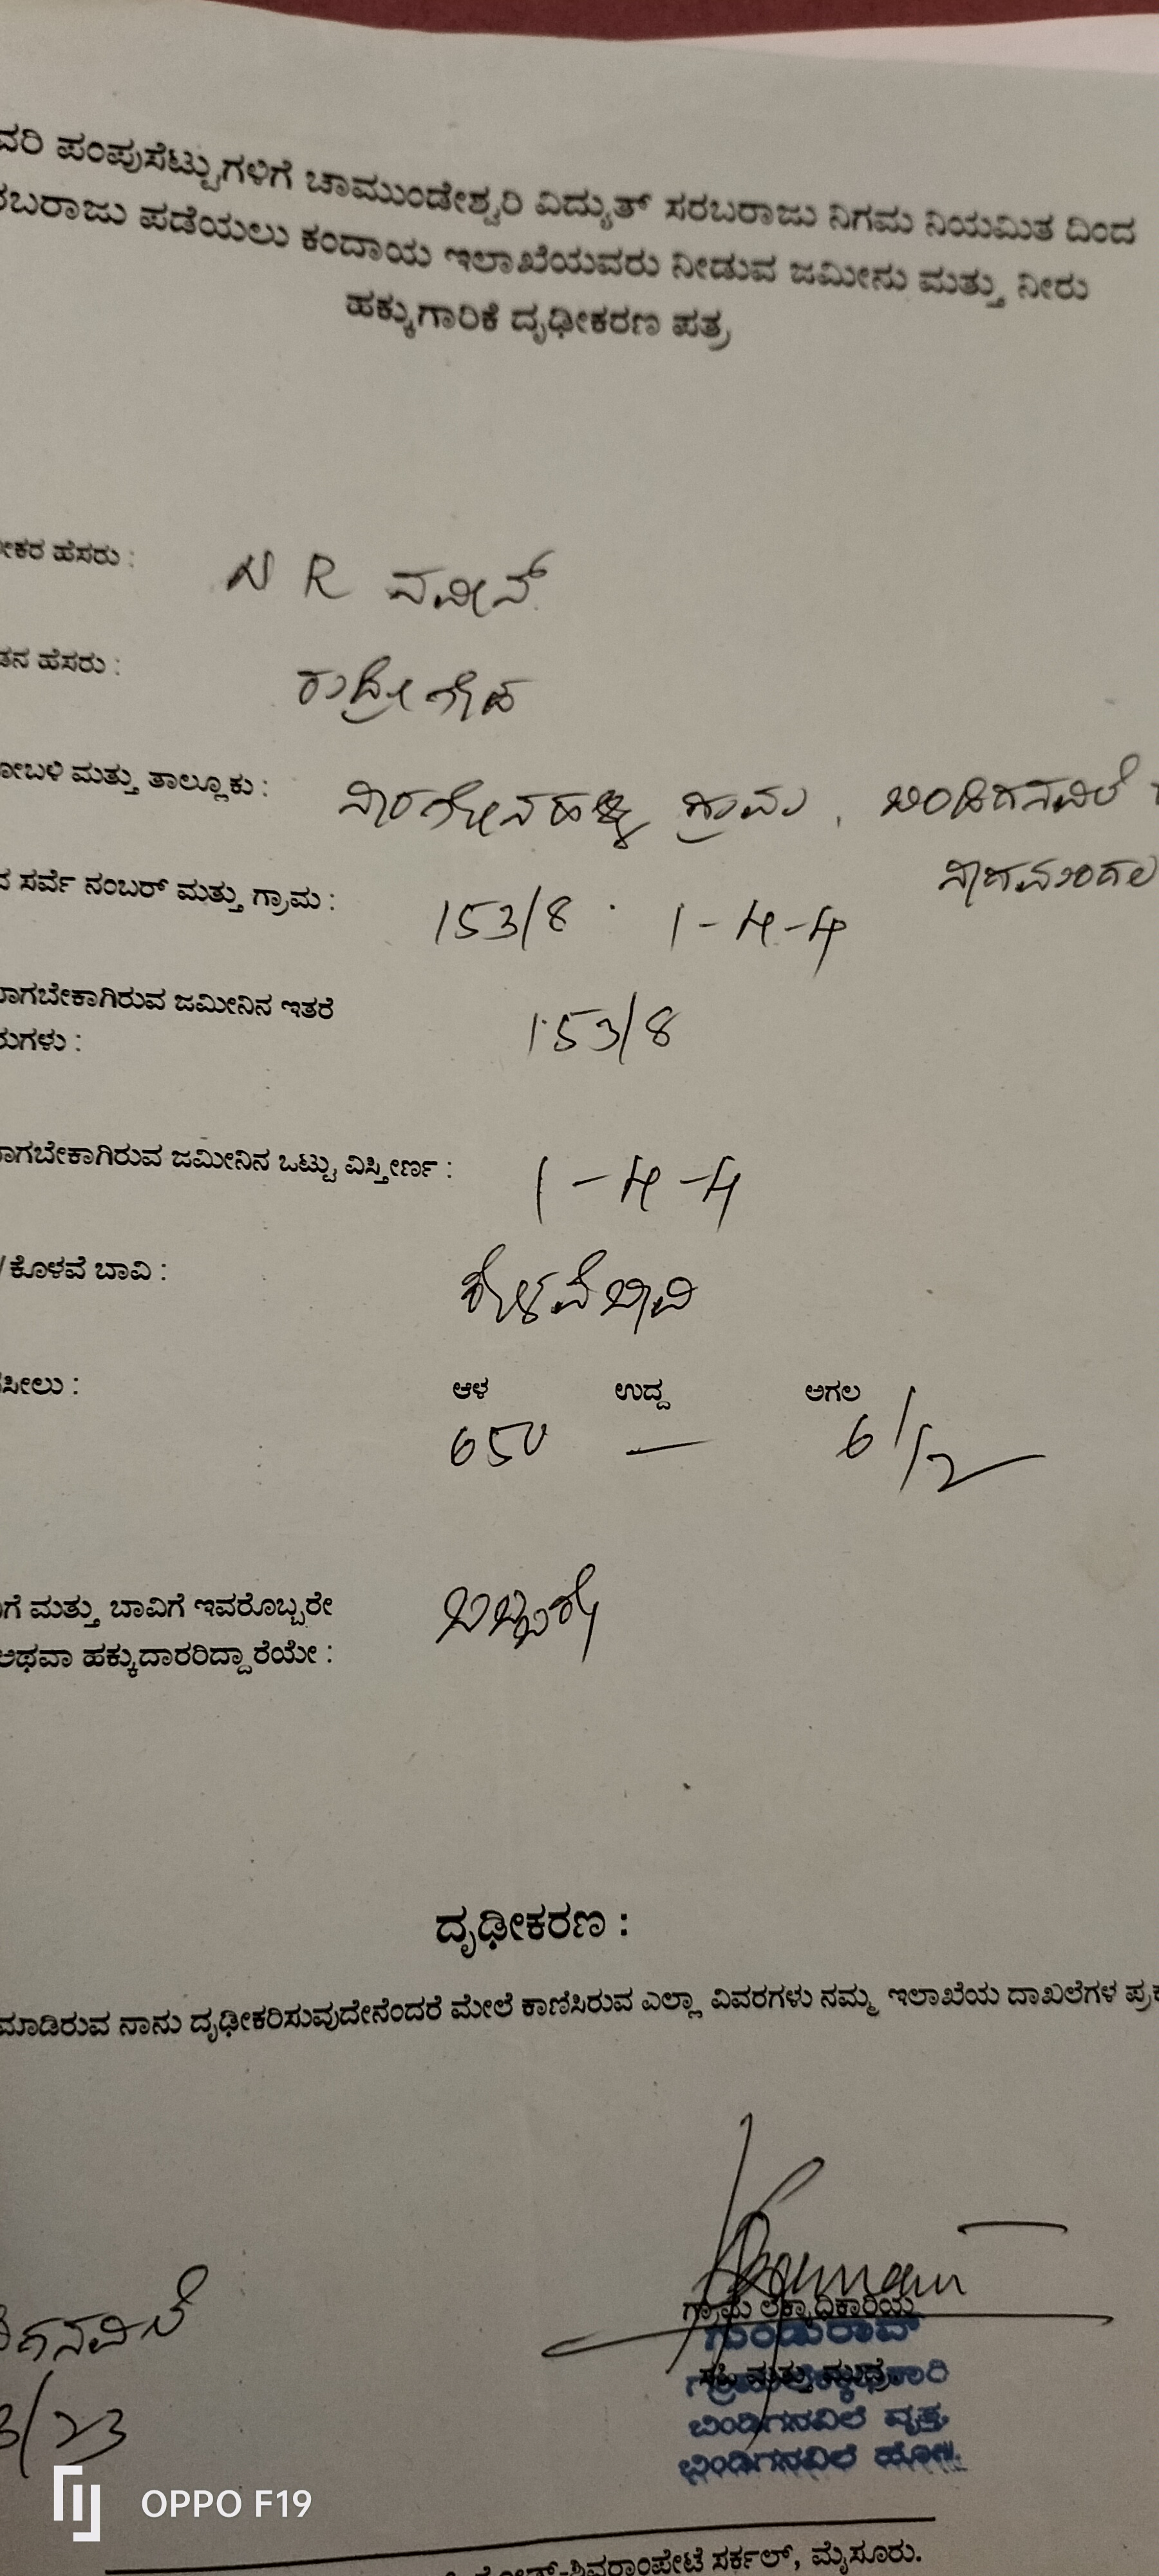 ವರಿ ಪಂಪುಸೆಟ್ಟುಗಳಿಗೆ ಚಾಮುಂಡೇಶ್ವರಿ ವಿದ್ಯುತ್ ಸರಬರಾಜು ನಿಗಮ ನಿಯಮಿತ ದಿಂದ
ರಬರಾಜು ಪಡೆಯಲು ಕಂದಾಯ ಇಲಾಖೆಯವರು ನೀಡುವ ಜಮೀನು ಮತ್ತು ನೀರು
ಹಕ್ಕುಗಾರಿಕೆ ದೃಢೀಕರಣ ಪತ್ರ
ೀಕರ ಹೆಸರು : N R ನವೀನ್
ತನ ಹೆಸರು :
ೋಬಳಿ ಮತ್ತು ತಾಲ್ಲೂಕು : ಗ್ರಾಮ, ಬಿಂಡಿಗನವಿಲೆ
ನಾಗಮಂಗಲ
ನ ಸರ್ವೆ ನಂಬರ್ ಮತ್ತು ಗ್ರಾಮ : 153/8 . 1-4-4
ಾಗಬೇಕಾಗಿರುವ ಜಮೀನಿನ ಇತರೆ
ರುಗಳು : 153/8
ಾಗಬೇಕಾಗಿರುವ ಜಮೀನಿನ ಒಟ್ಟು ವಿಸ್ತೀರ್ಣ : 1-4-4
/ಕೊಳವೆ ಬಾವಿ : ಕೊಳವೆ ಬಾವಿ
ಸೀಲು : ಆಳ ಉದ್ದ ಅಗಲ
650 — 6 1/2
ಗೆ ಮತ್ತು ಬಾವಿಗೆ ಇವರೊಬ್ಬರೇ ಒಬ್ಬರೇ
ಅಥವಾ ಹಕ್ಕುದಾರರಿದ್ದಾರೆಯೇ :
ದೃಢೀಕರಣ :
ಮಾಡಿರುವ ನಾನು ದೃಢೀಕರಿಸುವುದೇನೆಂದರೆ ಮೇಲೆ ಕಾಣಿಸಿರುವ ಎಲ್ಲಾ ವಿವರಗಳು ನಮ್ಮ ಇಲಾಖೆಯ ದಾಖಲೆಗಳ ಪ್ರಕ
ಗ್ರಾಮ ಲೆಕ್ಕಾಧಿಕಾರಿಯ
ಗುಂಡುರಾವ್
ಸಹಿ ಮತ್ತು ಮುದ್ರೆ
ಬಿಂಡಿಗನವಿಲೆ ವೃತ್ತ
ಬಿಂಡಿಗನವಿಲೆ ಹೋ||
ಿಗನವಿಲೆ
3/23
OPPO F19
ಶಿವರಾಂಪೇಟೆ ಸರ್ಕಲ್, ಮೈಸೂರು.